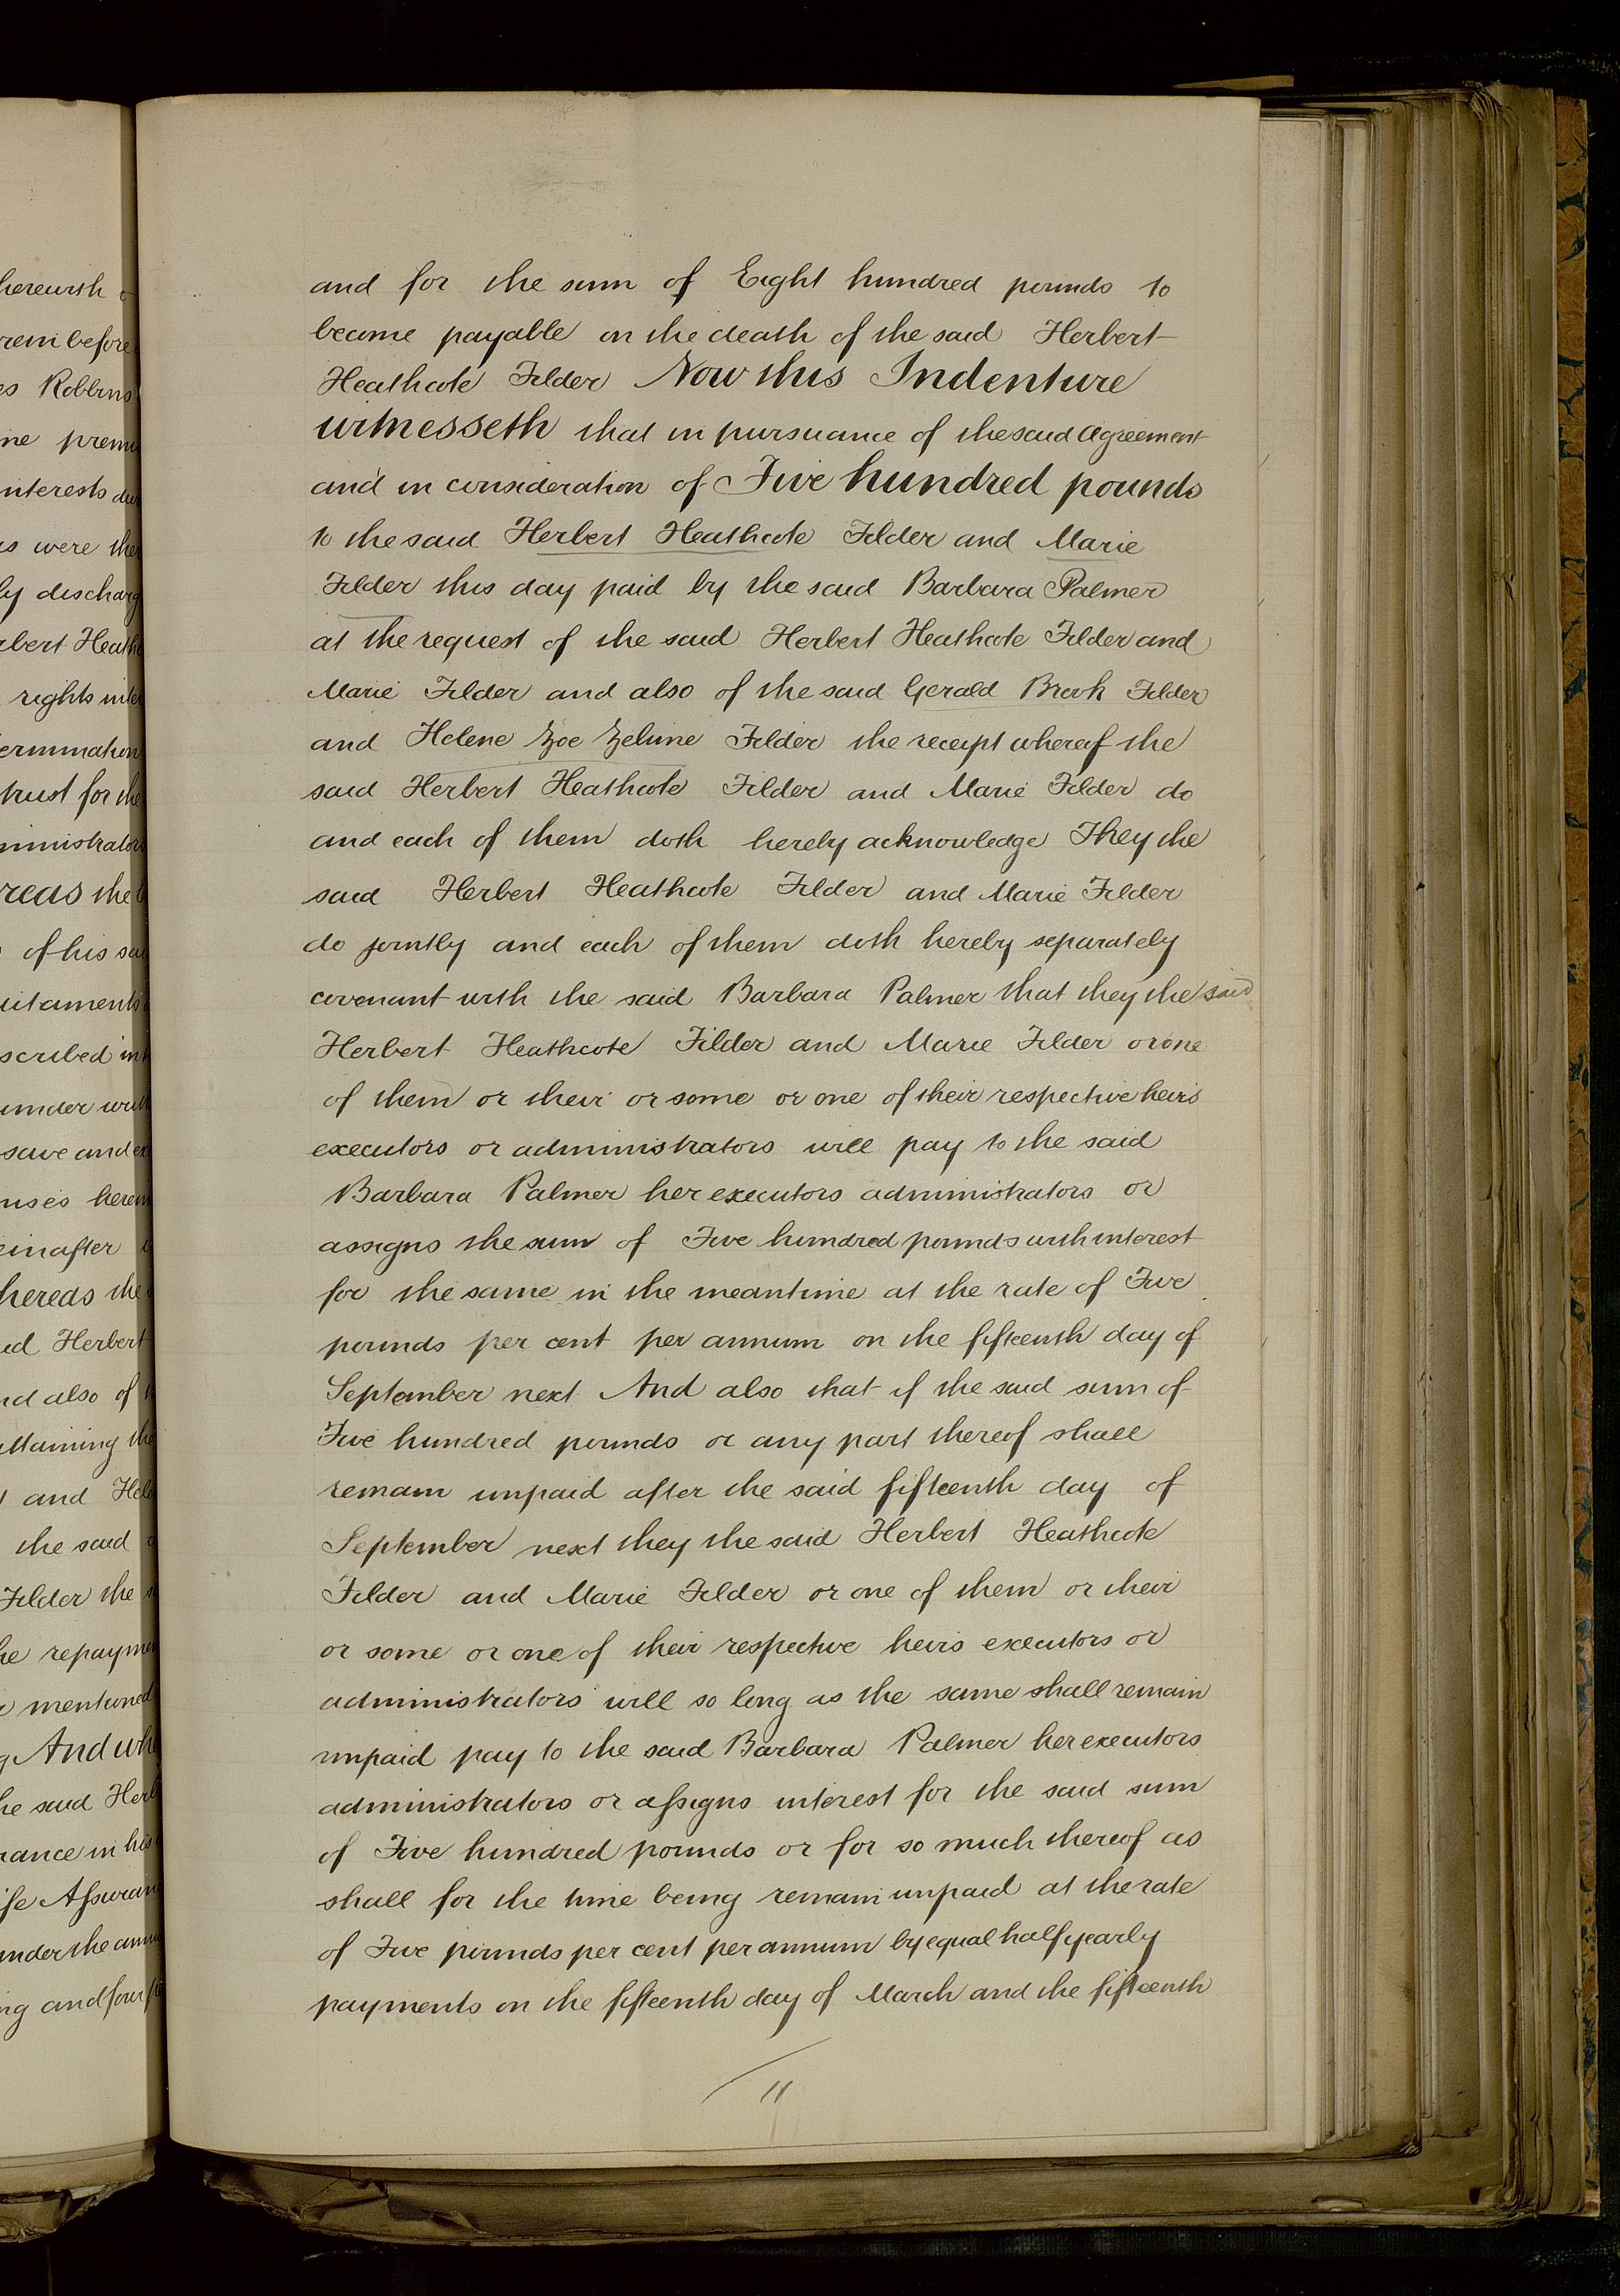 herewith
rein before
es Robbins
ne premi
interests du
s were the
ly discharg
rbert Heath
rights inte
ermination
trust for the
ministrators
reas the
of his sai
ditaments
scribed in
under writ
save and ex
uses herein
einafter
hereas the
id Herbert
nd also of
attaining the
and Hele
the said
Filder the
he repaymen
mentioned
g And whe
he said Herb
rance in his
ife Assuran
under the annu
ng and four
and for the sum of Eight hundred pounds to
become payable on the death of the said Herbert
Heathcote Filder Now this Indenture
witnesseth that in pursuance of the said Agreement
and in consideration of Five hundred pounds
to the said Herbert Heathcote Filder and Marie
Filder this day paid by the said Barbara Palmer
at the request of the said Herbert Heathcote Filder and
Marie Filder and also of the said Gerald Brook Filder
and Helene Zoe Zelime Filder the receipt whereof the
said Herbert Heathcote Filder and Marie Filder do
and each of them doth hereby acknowledge They the
said Herbert Heathcote Filder and Marie Filder
do jointly and each of them doth hereby separately
covenant with the said Barbara Palmer that they the said
Herbert Heathcote Filder and Marie Filder or one
of them or their or some or one of their respective heirs
executors or administrators will pay to the said
Barbara Palmer her executors administrators or
assigns the sum of Five hundred pounds with interest
for the same in the meantime at the rate of Five
pounds per cent per annum on the fifteenth day of
September next And also that if the said sum of
Five hundred pounds or any part thereof shall
remain unpaid after the said fifteenth day of
September next they the said Herbert Heathcote
Filder and Marie Filder or one of them or their
or some or one of their respective heirs executors or
administrators will so long as the same shall remain
unpaid pay to the said Barbara Palmer her executors
administrators or assigns interest for the said sum
of Five hundred pounds or for so much thereof as
shall for the time being remain unpaid at the rate
of Five pounds per cent per annum by equal half yearly
payments on the fifteenth day of March and the fifteenth
11